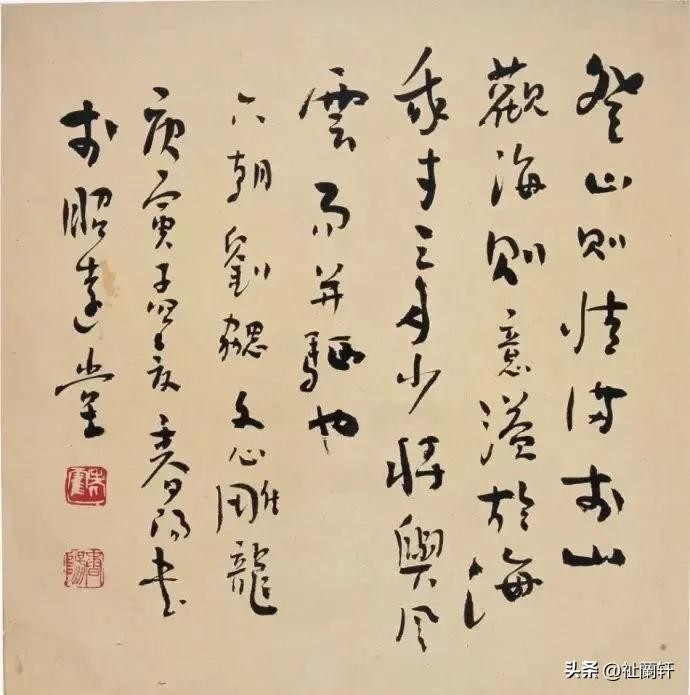 登山則情滿於山
觀海則意溢於海
我才之多少將與風
雲而并驅也
六朝劉勰文心雕龍
庚寅 書
於昭 堂
头条 @祉蘭轩